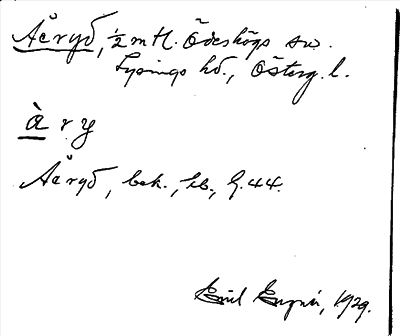 Åeryd, ½ mtl. Ödeshögs sn.
Lysings hd., Österg. l.
à ry
Åeryd, bek., lb., G. 44.
Emil 1929.